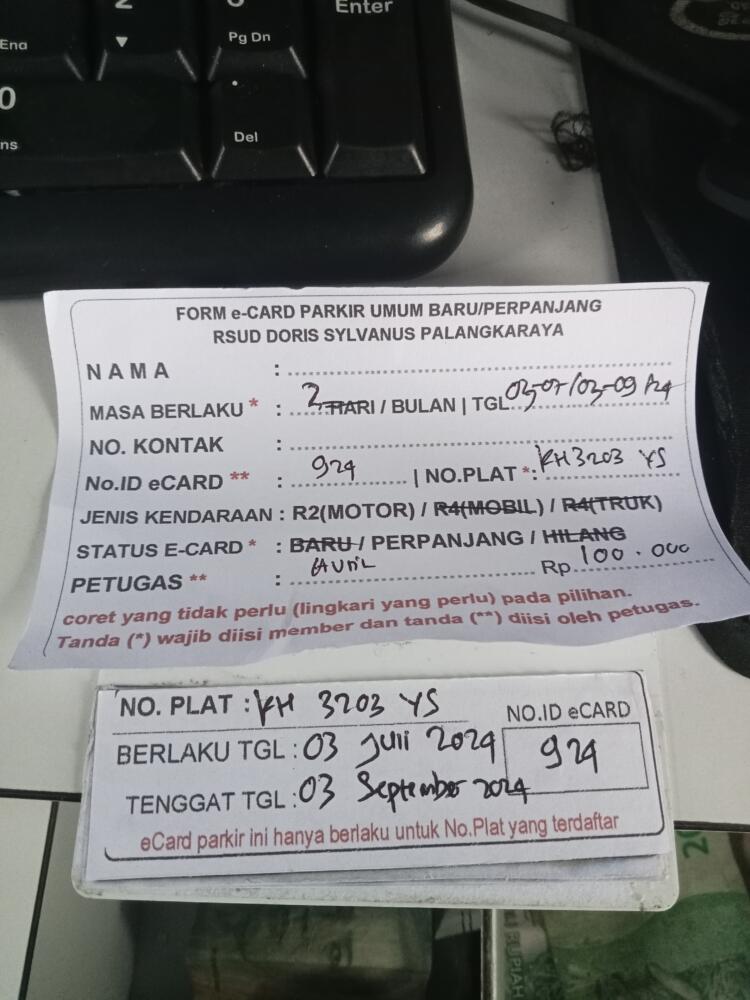 2
Enter
Ena
▼
Pg Dn
0
.
ns
Del
FORM e-CARD PARKIR UMUM BARU/PERPANJANG
RSUD DORIS SYLVANUS PALANGKARAYA
NAMA :
MASA BERLAKU * : 2 HARI / BULAN | TGL 03-07/03-09 /24
NO. KONTAK :
No.ID eCARD ** : 924 | NO.PLAT *: KH 3203 YS
JENIS KENDARAAN : R2(MOTOR) / R4(MOBIL) / R4(TRUK)
STATUS E-CARD * : BARU / PERPANJANG / HILANG
PETUGAS ** : Rp. 100.000
coret yang tidak perlu (lingkari yang perlu) pada pilihan.
Tanda (*) wajib diisi member dan tanda (**) diisi oleh petugas.
NO. PLAT : KH 3203 YS
NO.ID eCARD
BERLAKU TGL : 03 Juli 2024
924
TENGGAT TGL : 03 September 2024
eCard parkir ini hanya berlaku untuk No.Plat yang terdaftar